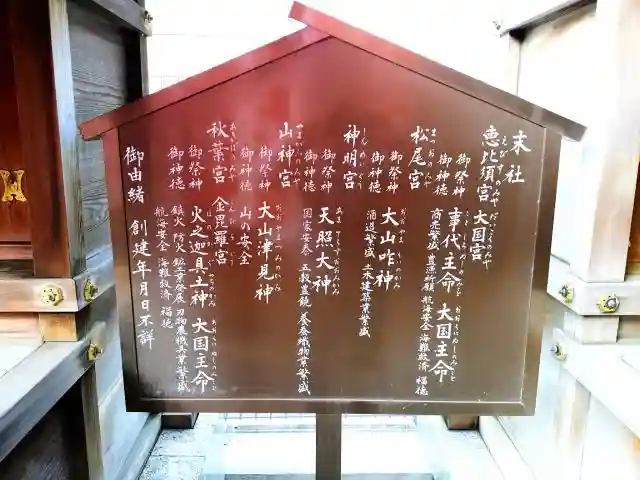 末社
恵比須宮 大国宮
御祭神 事代主命 大国主命
御神徳 商売繁盛 豊漁祈願 航海安全 海難救済 福徳
松尾宮
御祭神 大山咋神
御神徳 酒造繁盛 土木建築業繁盛
神明宮
御祭神 天照大神
御神徳 国家安泰 五穀豊饒 養蚕織物業繁盛
山神宮
御祭神 大山津見神
御神徳 山の安全
秋葉宮 金毘羅宮
御祭神 火之迦具土神 大国主命
御神徳 鎮火 防火 鉱工業発展 刃物農機具業繁盛
航海安全 海難救済 福徳
御由緒 創建年月日不詳